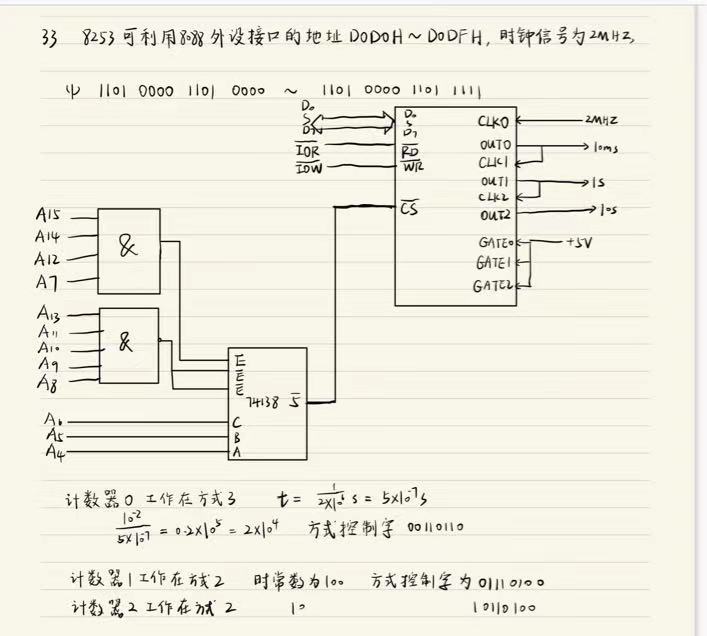 33 8253可利用8088外设接口的地址 D0D0H~D0DFH, 时钟信号为2MHZ,
ψ 1101 0000 1101 0000 ~ 1101 0000 1101 1111
D0
S
D7
IOR
IOW
D0
S
D7
RD
WR
CS
CLK0
2MHZ
OUT0
10ms
CLK1
OUT1
1S
CLK2
OUT2
10s
GATE0
+5V
GATE1
GATE2
A15
A14
A12
A7
&
A13
A11
A10
A9
A8
&
E
E
E
74138 5
C
B
A
A6
A5
A4
计数器0 工作在方式3 t= 1/2×10⁶ s = 5×10⁻⁷s
10⁻²/5×10⁻⁷ = 0.2×10⁵ = 2×10⁴ 方式控制字 00110110
计数器1工作在方式2 时常数为100 方式控制字为01110100
计数器2工作在方式2 10 10110100